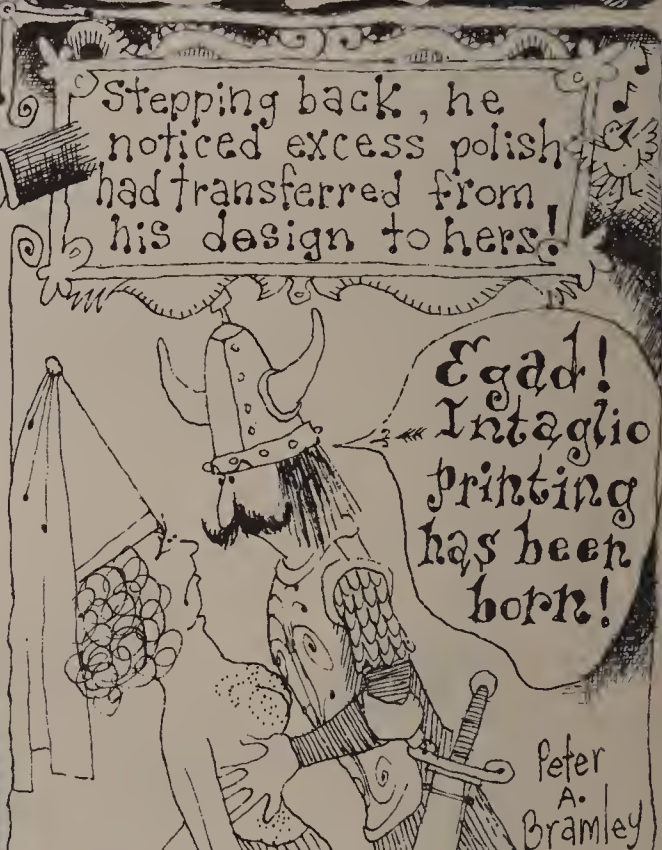 Stepping back, he
noticed excess polish
had transferred from
his design to hers!
Egad!
Intaglio
printing
has been
born!
Peter
A.
Bramley